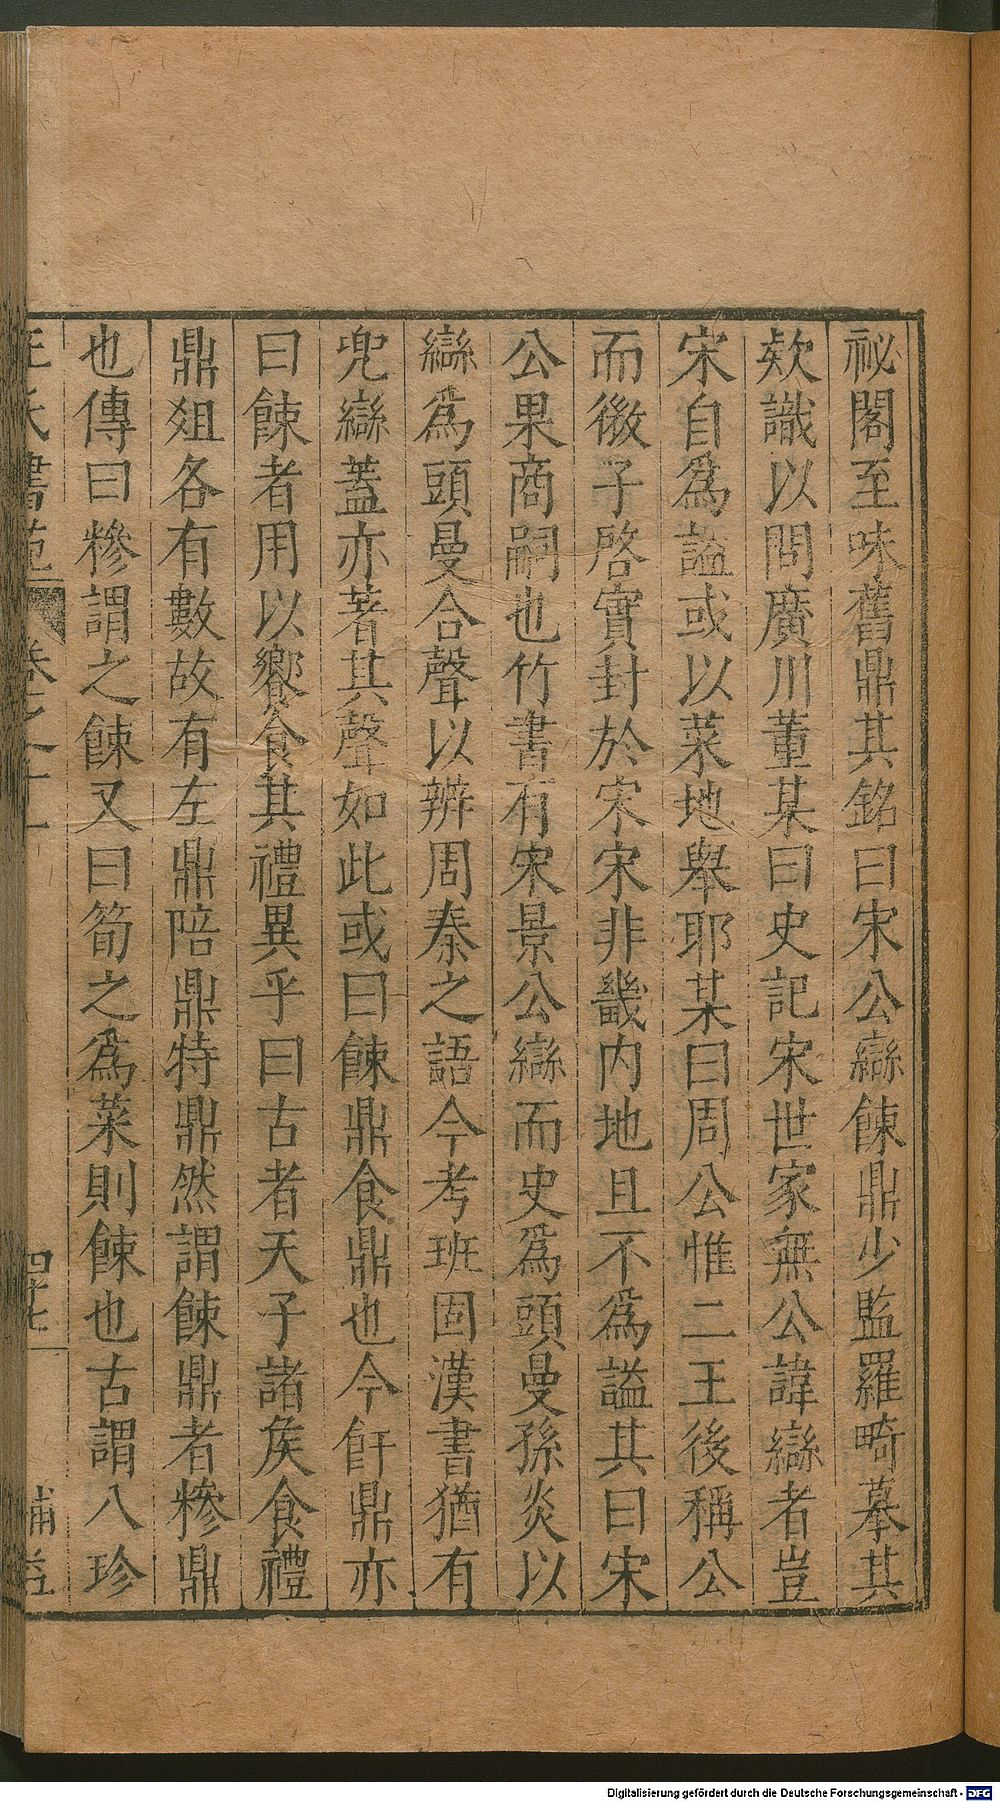 祕閣至味舊鼎其銘曰宋公䜌餗鼎少監羅畸摹其
欵識以問廣川董某曰史記宋世家無公諱䜌者豈
宋自爲謚或以菜地舉耶某曰周公惟二王後稱公
而微子啓實封於宋宋非畿内地且不爲謚其曰宋
公果商嗣也竹書有宋景公䜌而史爲頭曼孫炎以
䜌爲頭曼合聲以辨周秦之語今考班固漢書猶有
兜䜌蓋亦著其聲如此或曰餗鼎食鼎也今飦鼎亦
曰餗者用以饗食其禮異乎曰古者天子諸矦食禮
鼎俎各有數故有左鼎陪鼎特鼎然謂餗鼎者糝鼎
也傳曰糝謂之餗又曰筍之爲菜則餗也古謂八珍
王氏書苑 卷之十一 四十七 補益
Digitalisierung gefördert durch die Deutsche Forschungsgemeinschaft - DFG